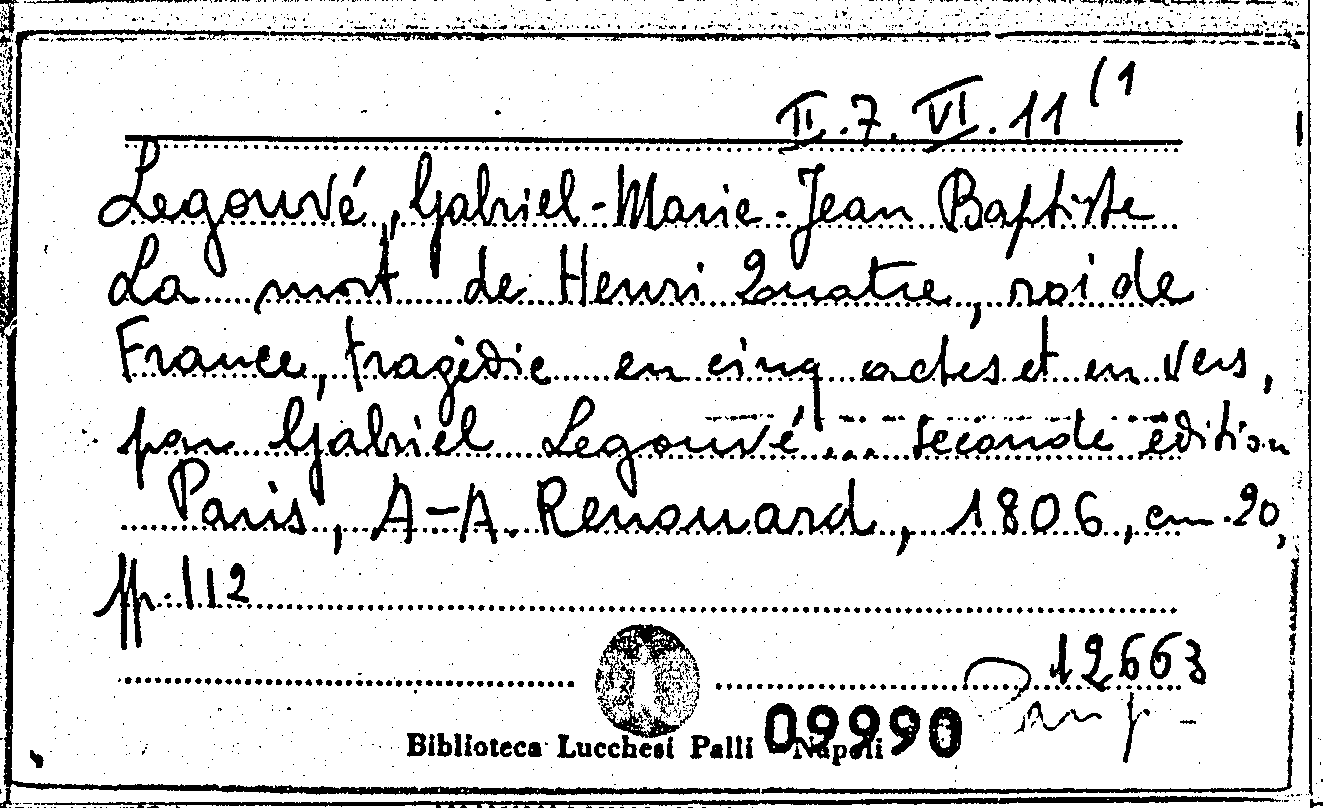 II.7.VI.11(1
Legouvé, Gabriel-Marie-Jean Baptiste
La mort de Henri Quatre, roi de
France, tragédie en cinq actes et en vers,
par Gabriel Legouvé... seconde édition
Paris, A-A. Renouard, 1806, cm.20,
pp.112
12663
09990
Biblioteca Lucchesi Palli Napoli